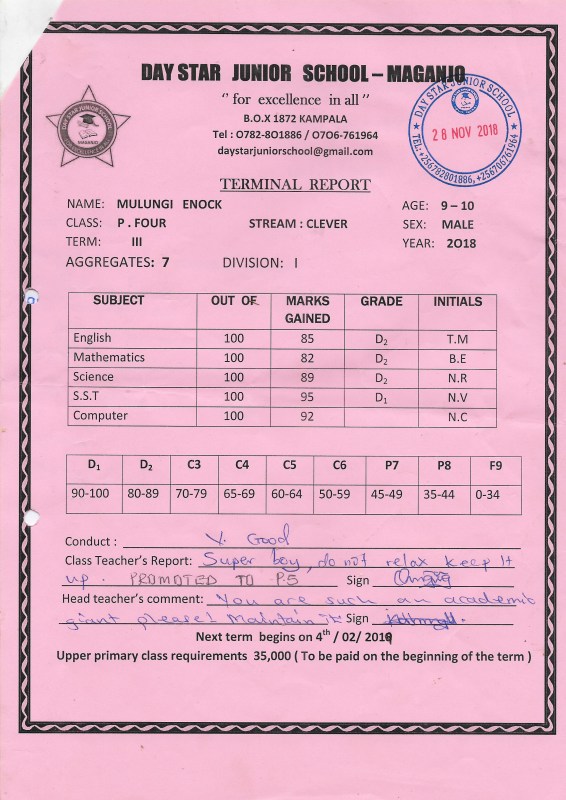 DAY STAR JUNIOR SCHOOL – MAGANJO
" for excellence in all "
B.O.X 1872 KAMPALA
Tel : O782-8O1886 / O7O6-761964
daystarjuniorschool@gmail.com
DAY STAR JUNIOR SCHOOL
MAGANJO
DAY STAR JUNIOR SCHOOL
28 NOV 2018
TEL: +256782801886, +256706761964
TERMINAL REPORT
NAME: MULUNGI ENOCK AGE: 9 – 10
CLASS: P . FOUR STREAM : CLEVER SEX: MALE
TERM: III YEAR: 2O18
AGGREGATES: 7 DIVISION: I
SUBJECT OUT OF. MARKS GAINED GRADE INITIALS
English 100 85 D2 T.M
Mathematics 100 82 D2 B.E
Science 100 89 D2 N.R
S.S.T 100 95 D1 N.V
Computer 100 92 N.C
D1 D2 C3 C4 C5 C6 P7 P8 F9
90-100 80-89 70-79 65-69 60-64 50-59 45-49 35-44 0-34
Conduct : V. Good
Class Teacher's Report: Super boy, do not relax keep it
up. PROMOTED TO P.5 Sign
Head teacher's comment: You are such an academic
giant please! Maintain it. Sign
Next term begins on 4th / 02/ 2019
Upper primary class requirements 35,000 ( To be paid on the beginning of the term )